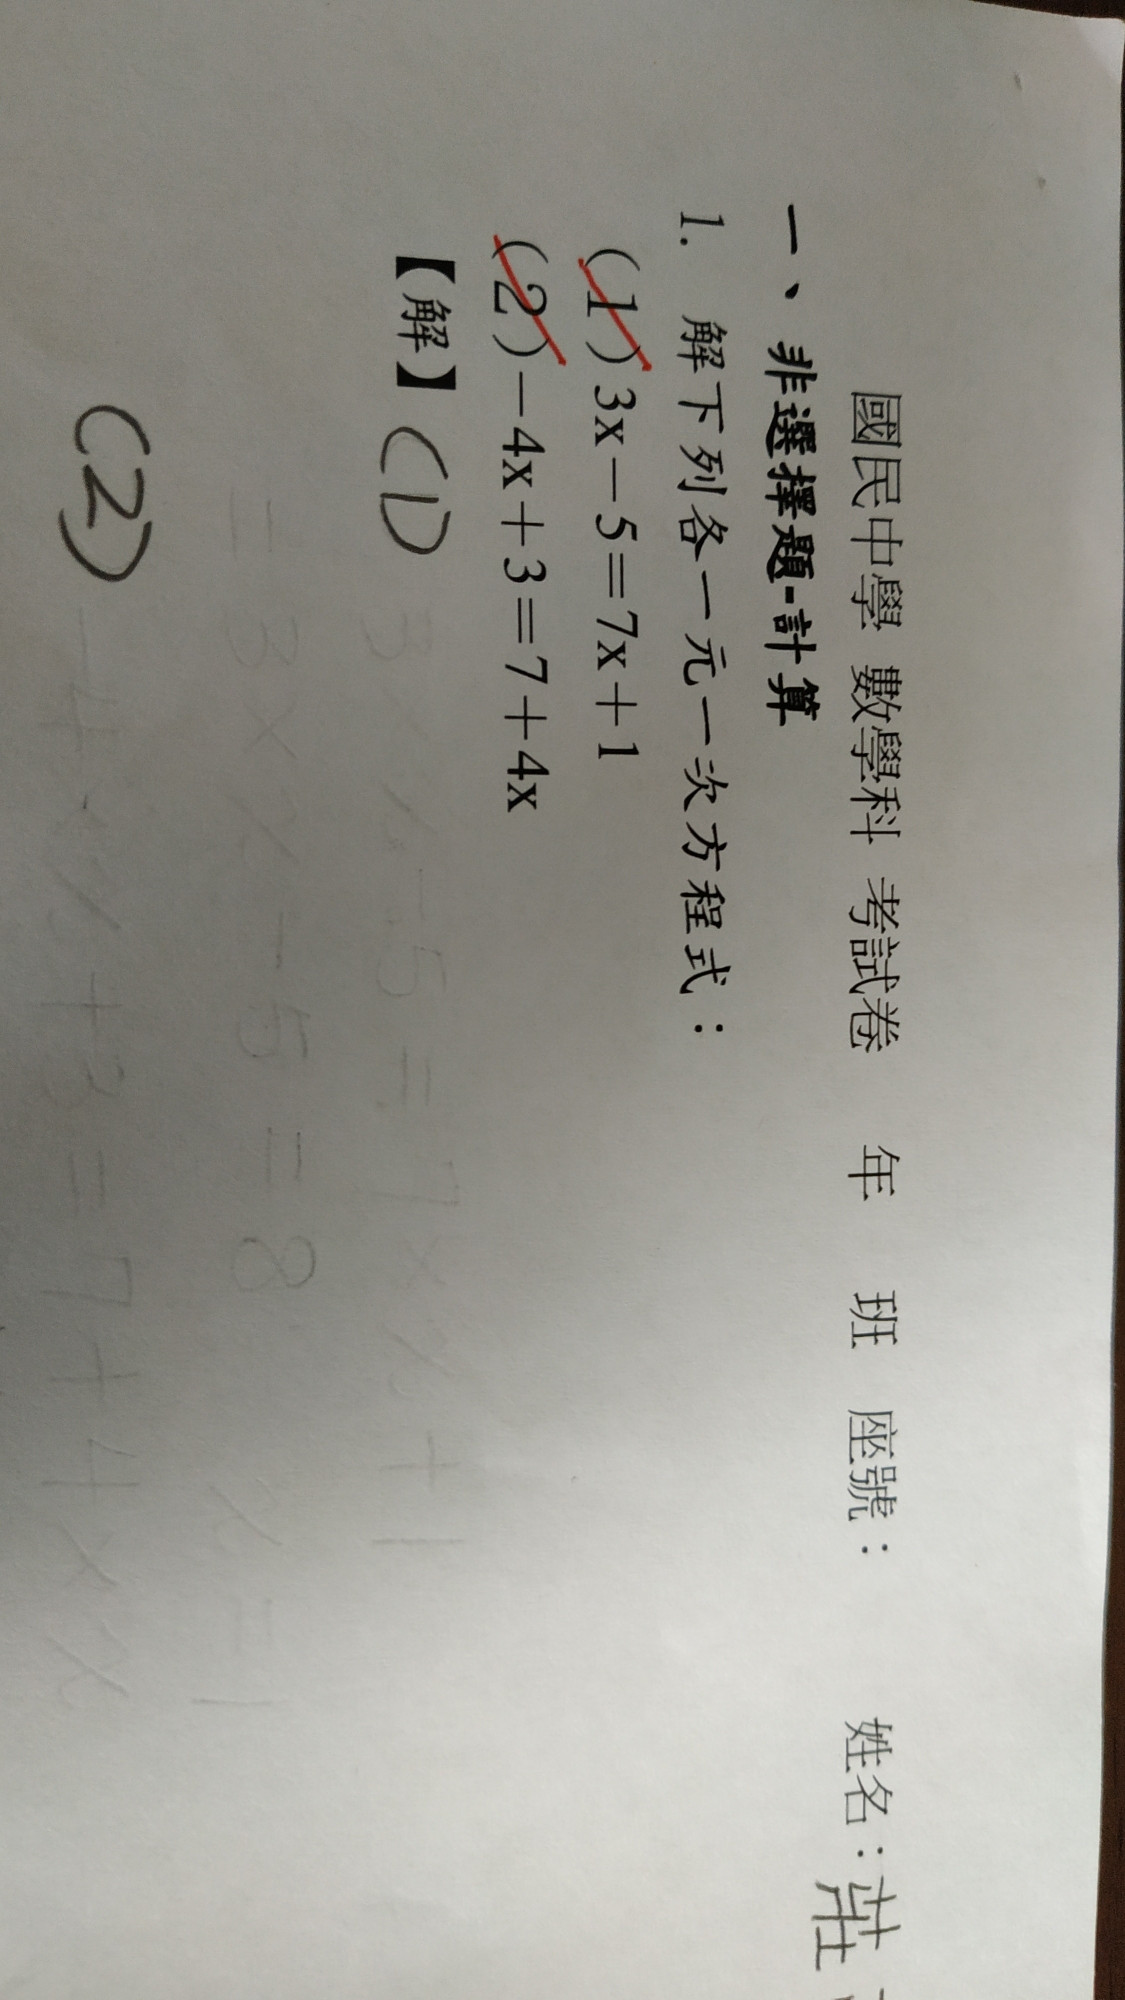 國民中學 數學科 考試卷 年 班 座號： 姓名：莊
一、非選擇題-計算
1. 解下列各一元一次方程式：
(1)3x－5＝7x＋1
(2)－4x＋3＝7＋4x
【解】(1) 3×x－5＝7×x＋1
＝3×x－5＝8 x＝1
(2) －4×x＋3＝7＋4×x